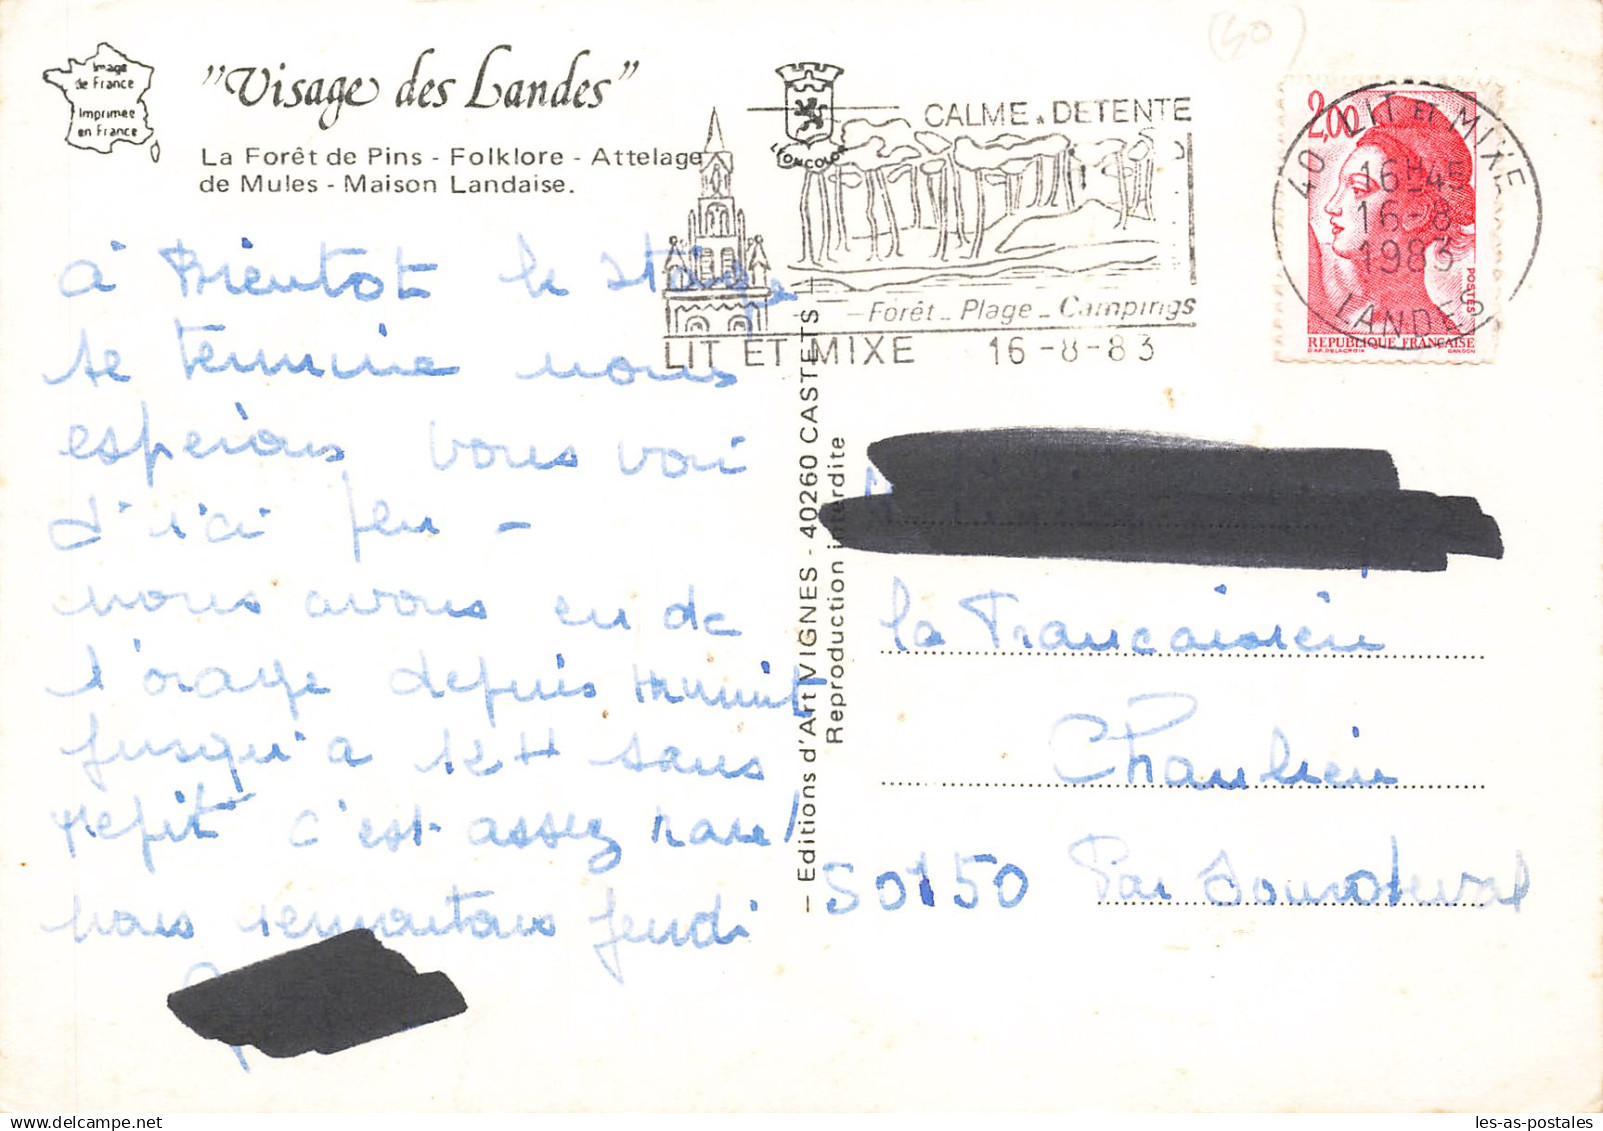 (40)
Image
de France
Imprimée
en France
"Visage des Landes"
La Forêt de Pins - Folklore - Attelage
de Mules - Maison Landaise.
LEONCOLOR
CALME . DETENTE
Forêt - Plage - Campings
LIT ET MIXE 16-8-83
2,00
POSTES
REPUBLIQUE FRANÇAISE
D'AP. DELACROIX GANDON
40 LIT ET MIXE
16H45
16-8
1983
LANDES
à Bientot le stage
se termine nous
esperons vous voir
d'ici peu -
nous avons eu de
l'orage depuis
jusqu'a 12H sans
repit c'est assez rare!
nous remontons jeudi
Editions d'Art VIGNES - 40260 CASTETS
Reproduction interdite
la Francaisien
Chaulieu
50150 Par Sourdeval
les-as-postales